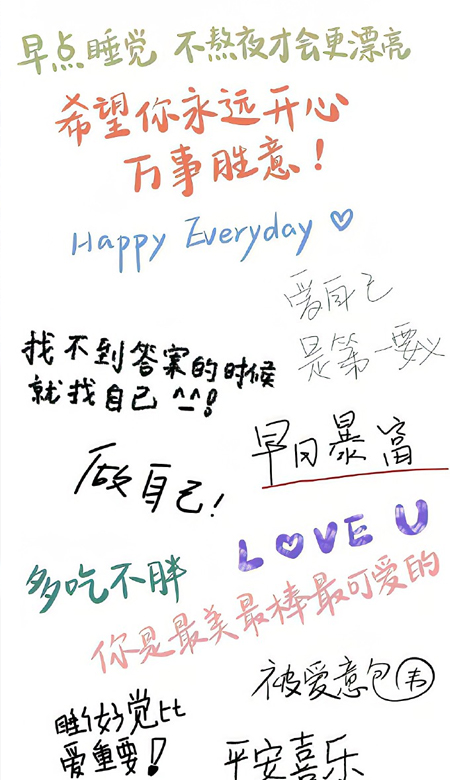 早点睡觉 不熬夜才会更漂亮
希望你永远开心
万事胜意！
Happy Everyday ♡
爱自己
是第一要义
找不到答案的时候
就找自己 ^_^!
做自己！
早日暴富
LOVE U
多吃不胖
你是最美最棒最可爱的
被爱意包韦
睡个好觉比
爱重要！
平安喜乐